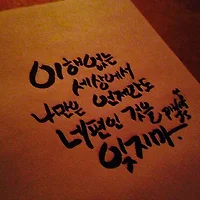 이해없는
세상에서
나만은 언제라도
네편인 것을
잊지마